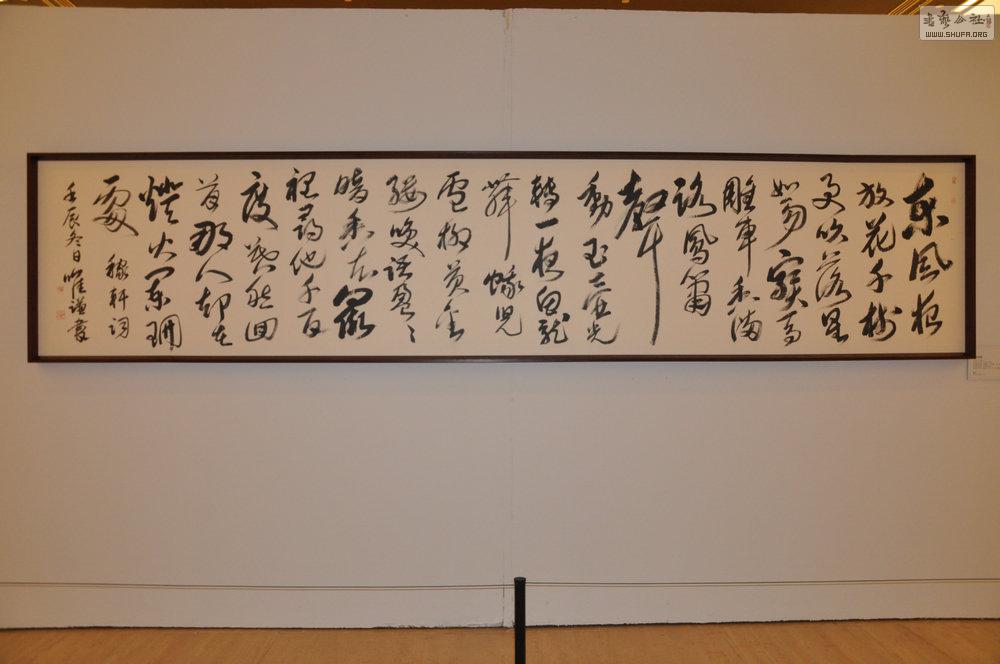 東風夜
放花千樹
更吹落星
如雨寶馬
雕車香滿
路鳳簫
聲
動玉壺光
轉一夜魚龍
舞蛾兒
雪柳黃金
縷笑語盈〻
暗香去眾
裡尋他千百
度驀然回
首那人卻在
燈火闌珊
處 稼軒詞
壬辰冬日 唯謙書
书艺公社
WWW.SHUFA.ORG